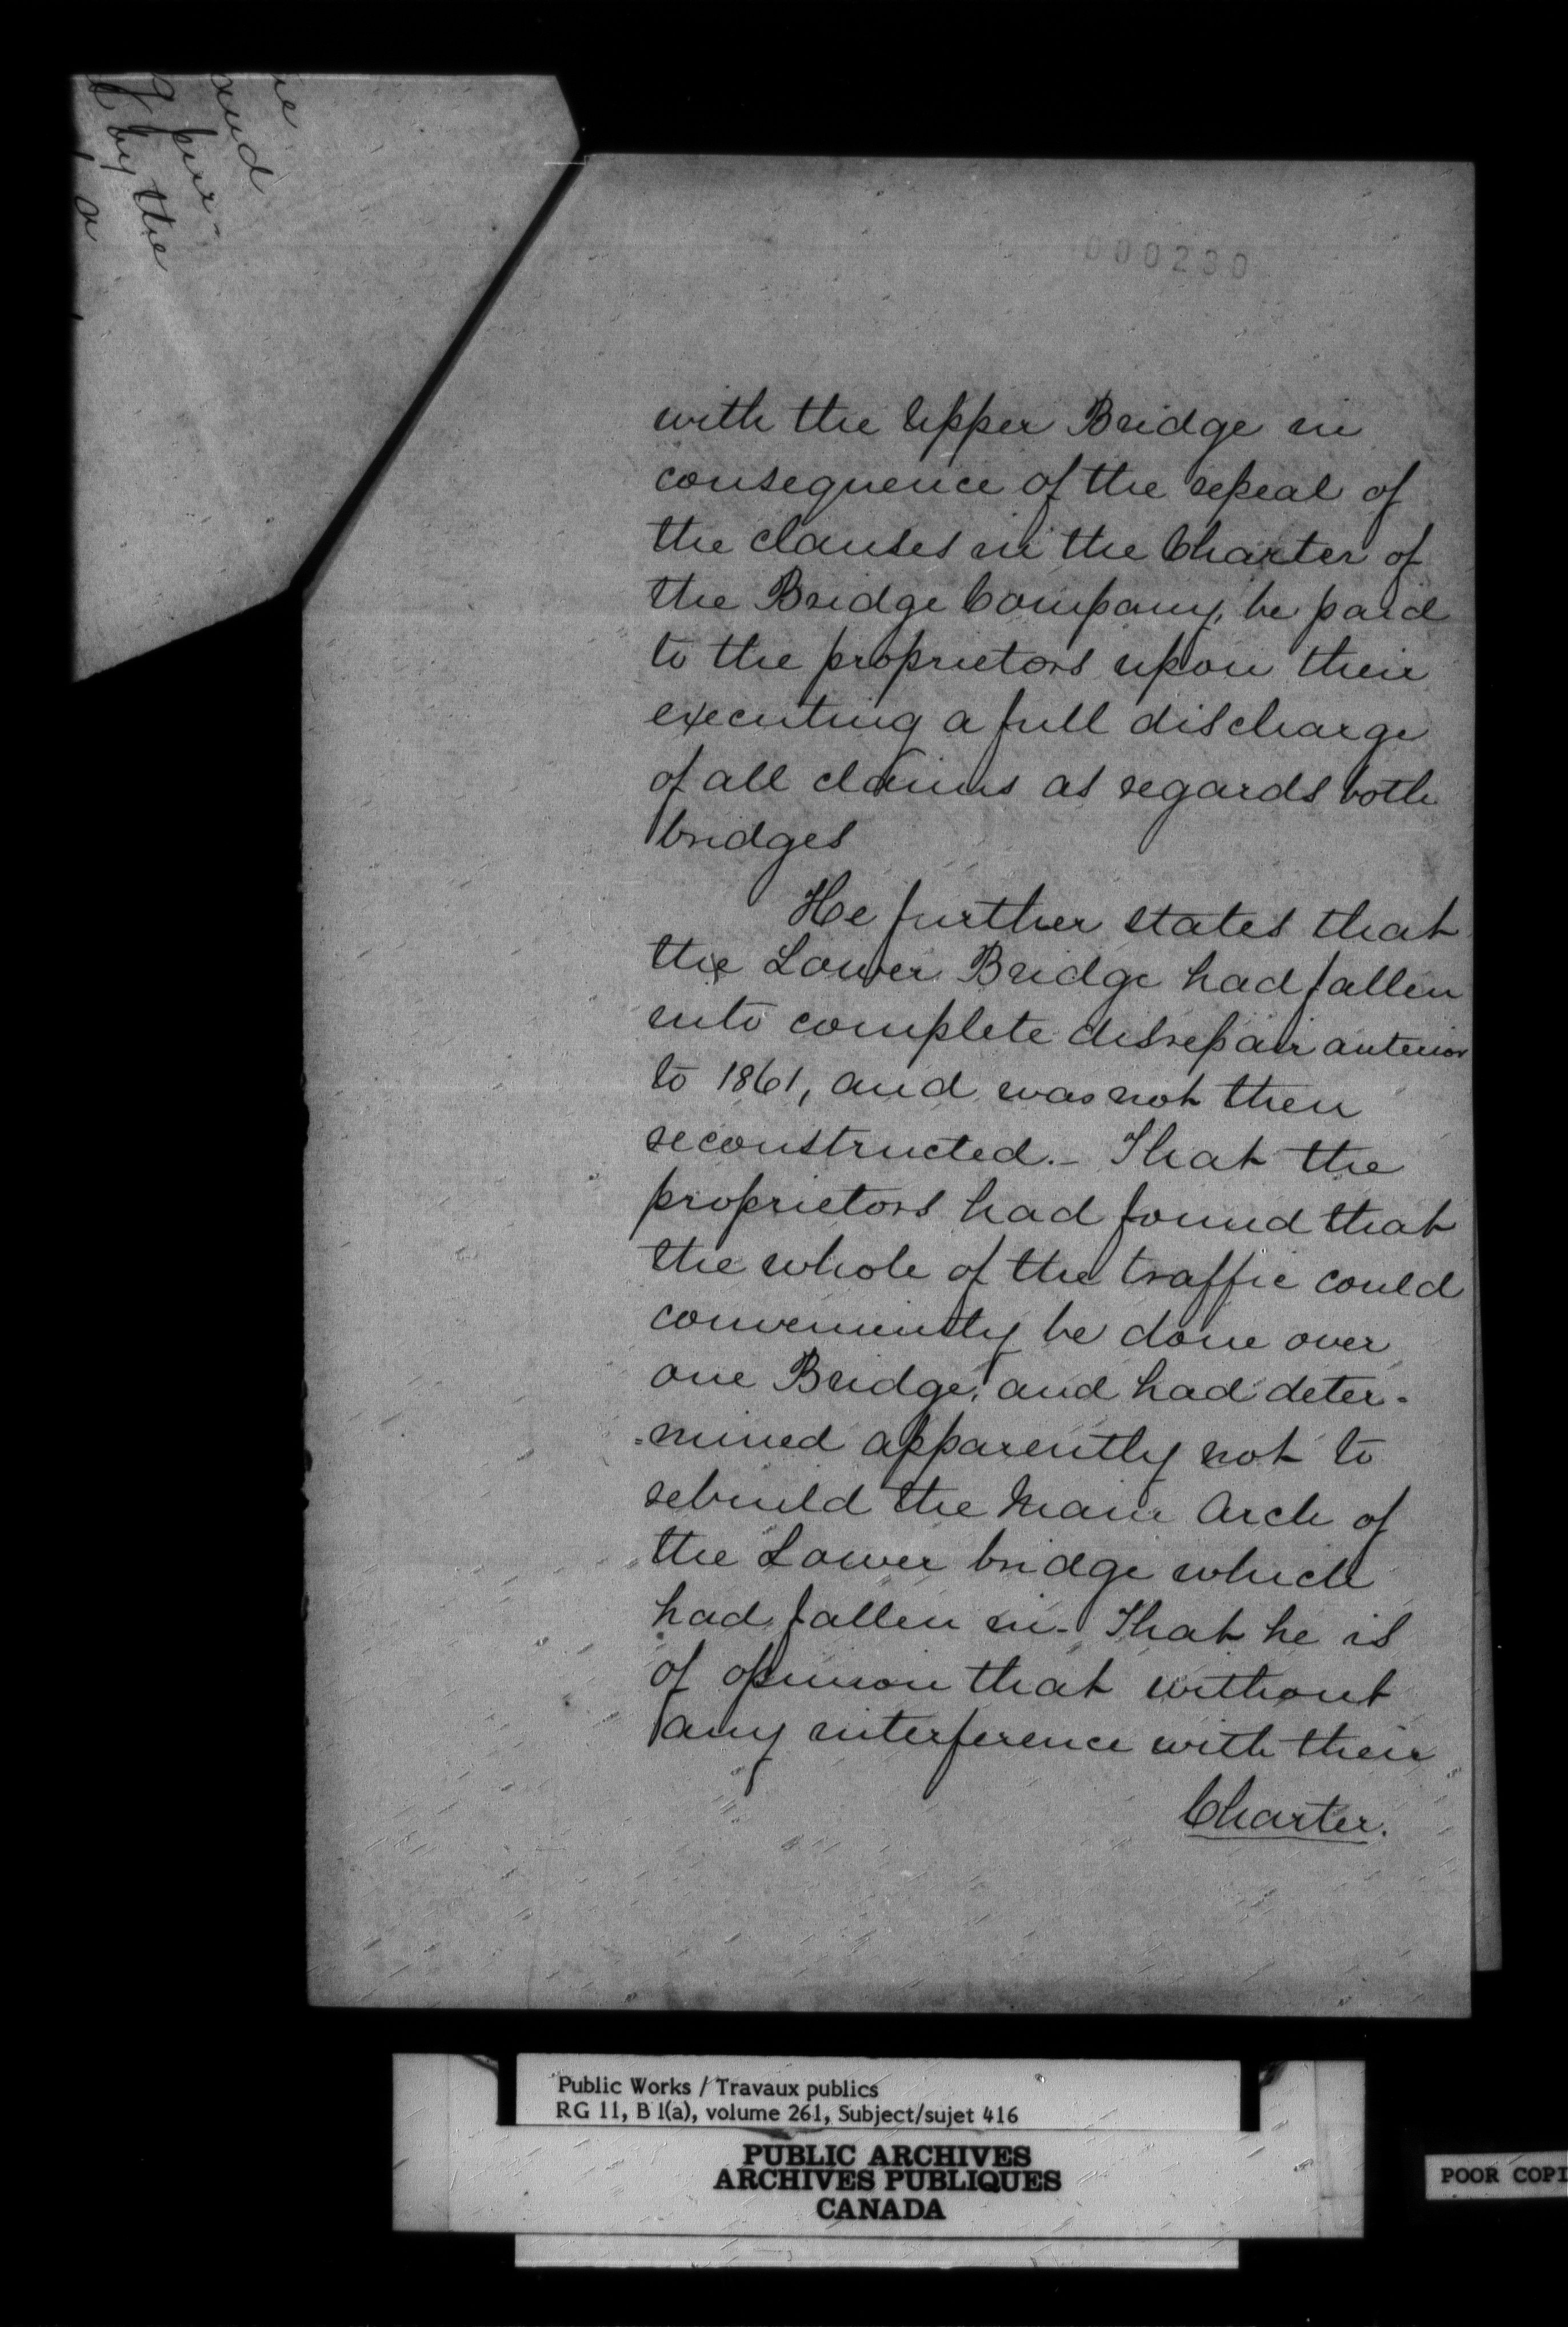 ie
and
pur-
by the
, a
000230
with the Upper Bridge in
consequence of the repeal of
the clauses in the Charter of
the Bridge Company, be paid
to the proprietors upon their
executing a full discharge
of all claims as regards both
bridges
He further states that
the Lower Bridge had fallen
into complete disrepair anterior
to 1861, and was not then
reconstructed.- That the
proprietors had found that
the whole of the traffic could
conveniently be done over
one Bridge, and had deter-
-mined apparently not to
rebuild the Main Arch of
the Lower bridge which
had fallen in- That he is
of opinion that without
any interference with their
Charter.
Public Works / Travaux publics
RG 11, B 1(a), volume 261, Subject/sujet 416
PUBLIC ARCHIVES
ARCHIVES PUBLIQUES
CANADA
POOR COPI